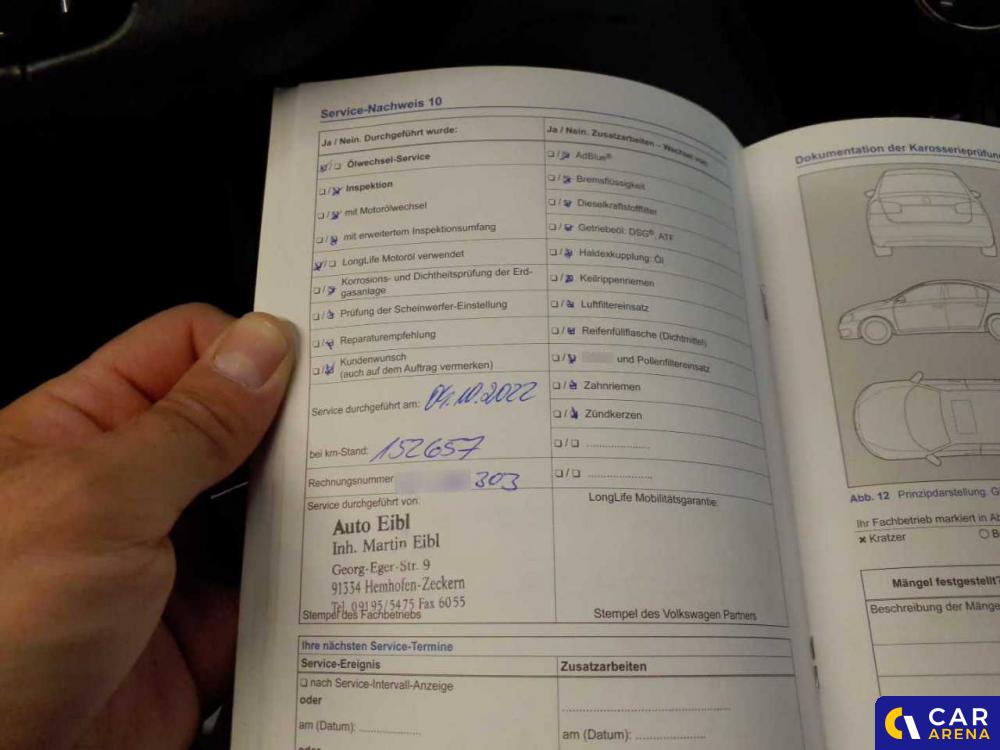 Service-Nachweis 10
Ja / Nein. Durchgeführt wurde:
Ölwechsel-Service
Inspektion
mit Motorölwechsel
mit erweitertem Inspektionsumfang
LongLife Motoröl verwendet
Korrosions- und Dichtheitsprüfung der Erd-
gasanlage
Prüfung der Scheinwerfer-Einstellung
Reparaturempfehlung
Kundenwunsch
(auch auf dem Auftrag vermerken)
Service durchgeführt am: 04.10.2022
bei km-Stand: 152657
Rechnungsnummer 303
Service durchgeführt von:
Auto Eibl
Inh. Martin Eibl
Georg-Eger-Str. 9
91334 Hemhofen-Zeckern
Tel. 09195/5475 Fax 6055
Stempel des Fachbetriebs
Ja / Nein. Zusatzarbeiten – Wechsel von:
AdBlue®
Bremsflüssigkeit
Dieselkraftstofffilter
Getriebeöl: DSG®, ATF
Haldexkupplung: Öl
Keilrippenriemen
Luftfiltereinsatz
Reifenfüllflasche (Dichtmittel)
und Pollenfiltereinsatz
Zahnriemen
Zündkerzen
LongLife Mobilitätsgarantie:
Stempel des Volkswagen Partners
Ihre nächsten Service-Termine
Service-Ereignis
Zusatzarbeiten
nach Service-Intervall-Anzeige
oder
am (Datum):
am (Datum):
oder
Dokumentation der Karosserieprüfun
Abb. 12 Prinzipdarstellung. G
Ihr Fachbetrieb markiert in Ab
Kratzer
B
Mängel festgestellt?
Beschreibung der Mänge
CAR
ARENA